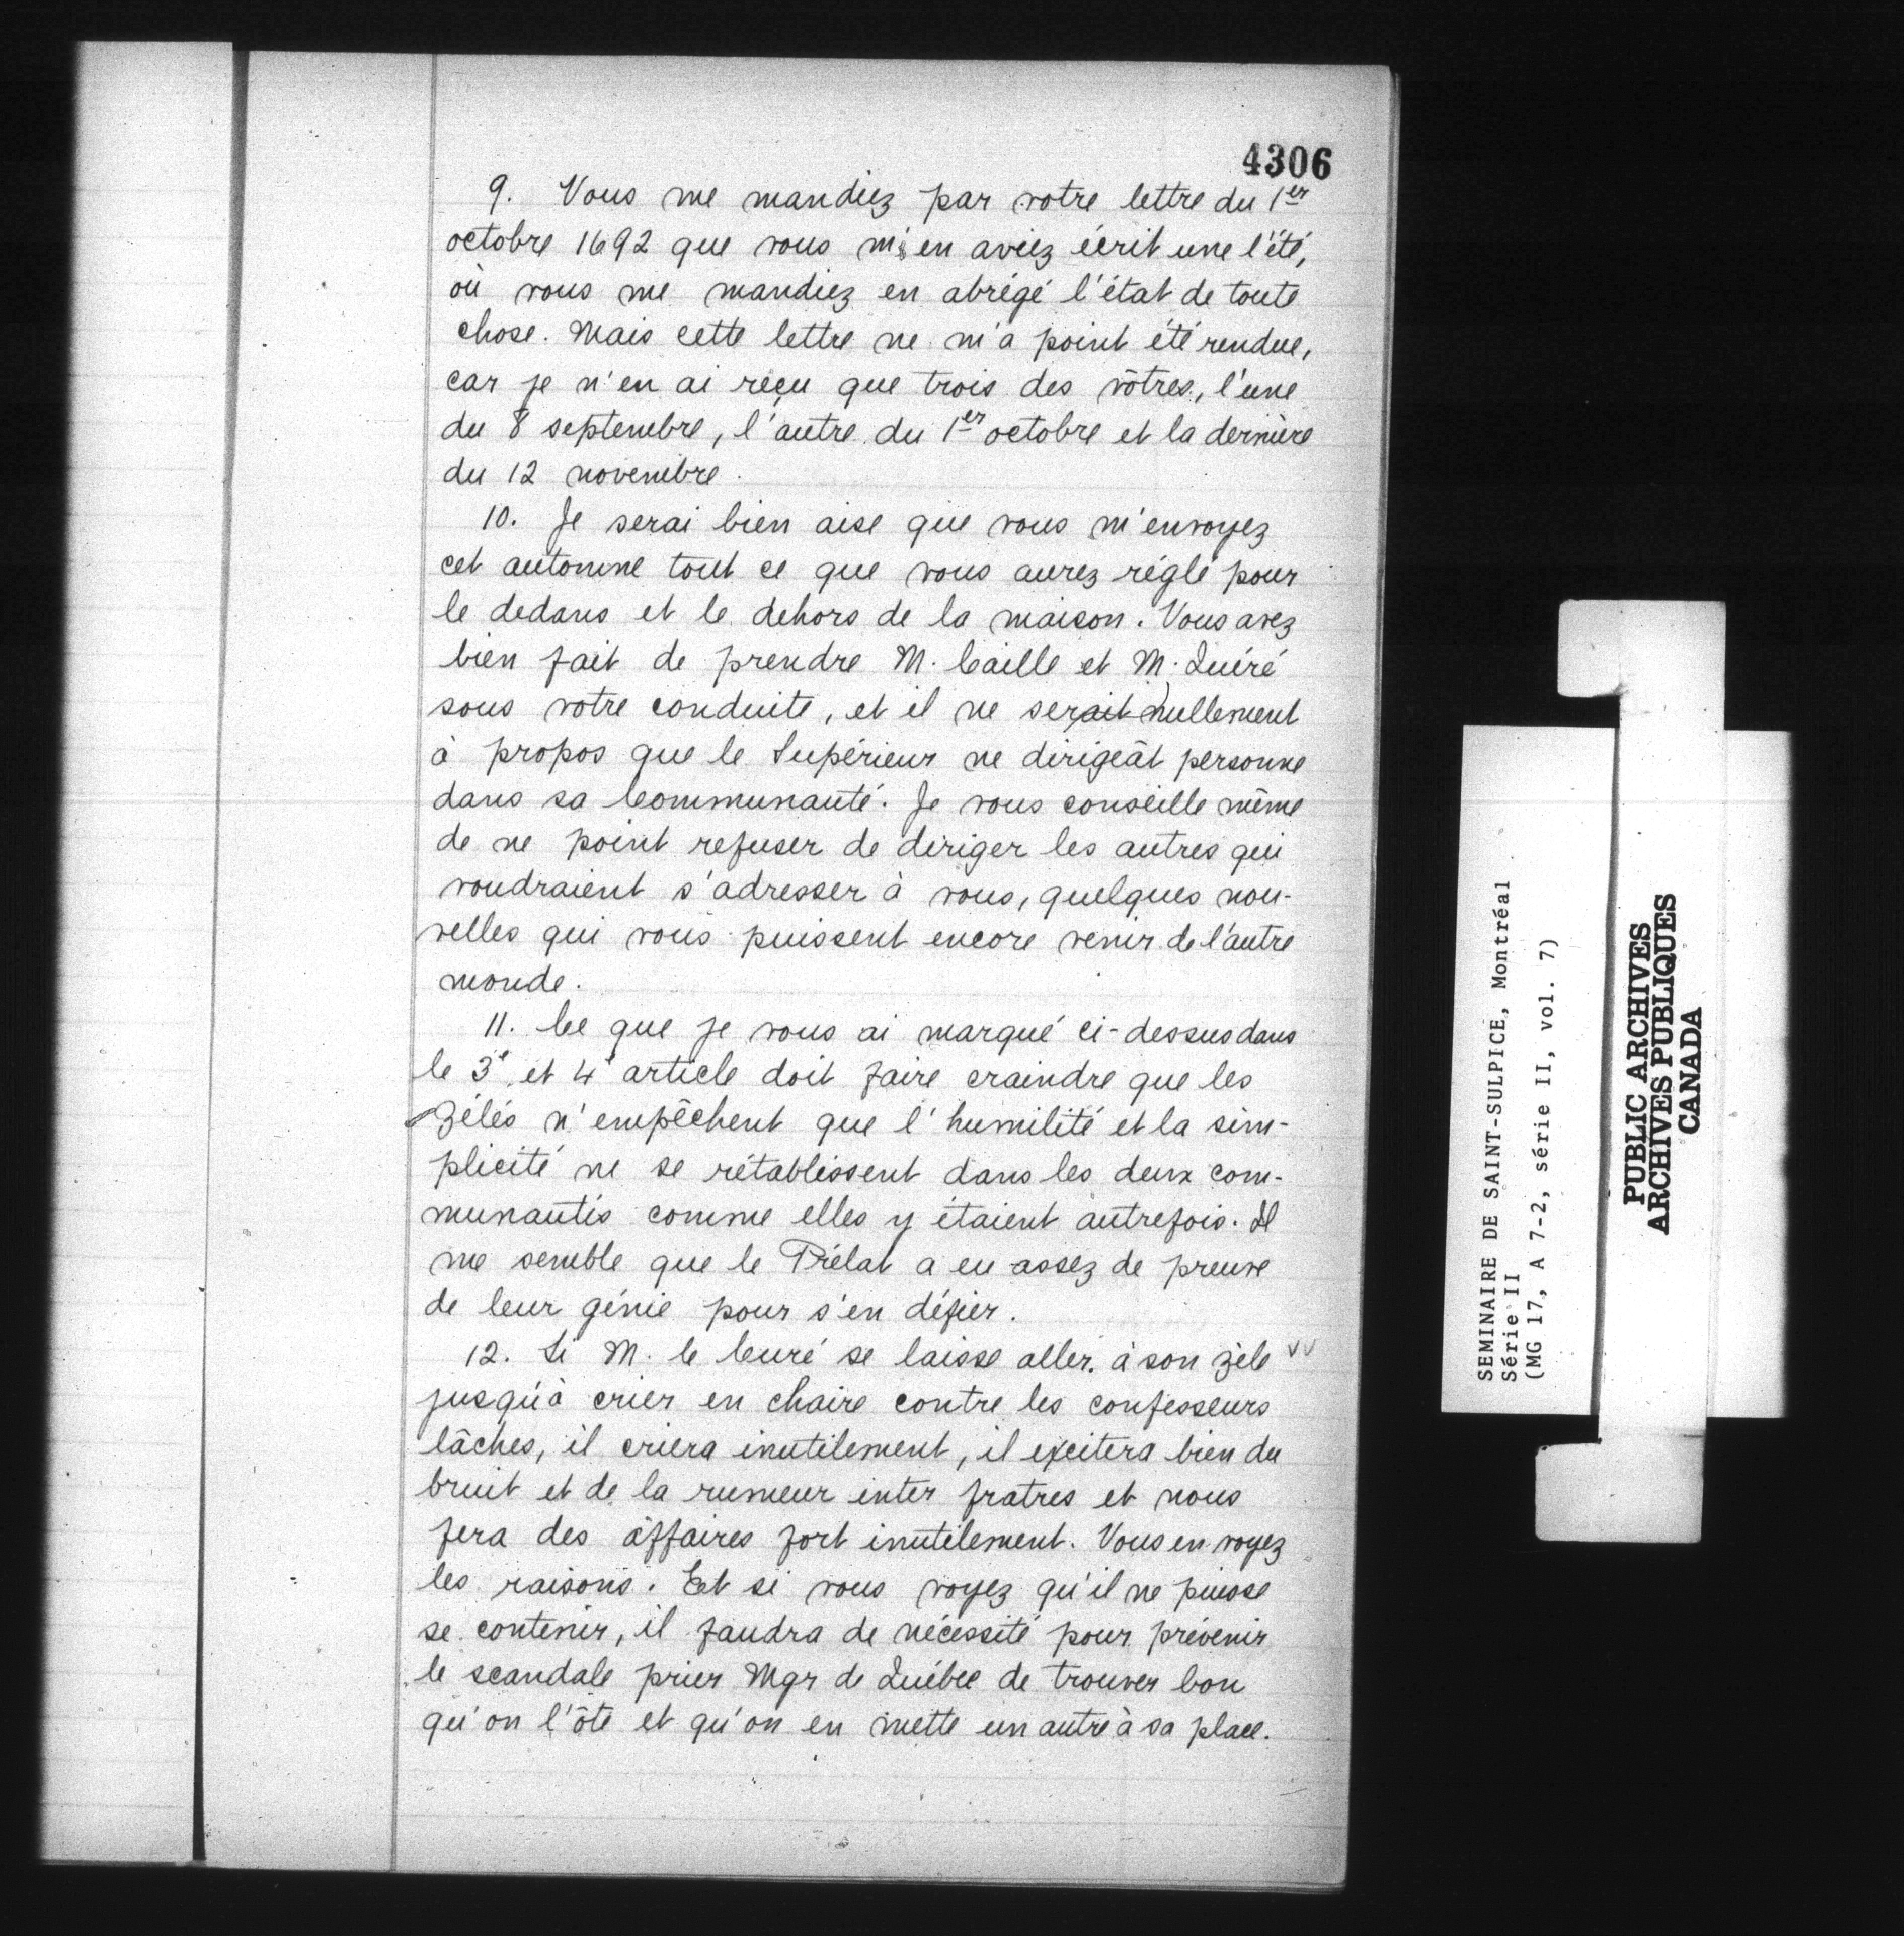 4306
9. Vous me mandiez par votre lettre du 1er
octobre 1692 que vous m'en aviez écrit une l'été,
où vous me mandiez en abrégé l'état de toute
chose. Mais cette lettre ne m'a point été rendue,
car je n'en ai reçu que trois des vôtres, l'une
du 8 septembre, l'autre du 1er octobre et la dernière
du 12 novembre.
10. Je serai bien aise que vous m'envoyez
cet automne tout ce que vous aurez réglé pour
le dedans et le dehors de la maison. Vous avez
bien fait de prendre M. Caille et M. Quéré
sous votre conduite, et il ne serait nullement
à propos que le Supérieur ne dirigeât personne
dans sa Communauté. Je vous conseille même
de ne point refuser de diriger les autres qui
voudraient s'adresser à vous, quelques nou-
velles qui vous puissent encore venir de l'autre
monde.
11. Ce que je vous ai marqué ci-dessus dans
le 3e et 4e article doit faire craindre que les
zélés n'empêchent que l'humilité et la sim-
plicité ne se rétablissent dans les deux com-
munautés comme elles y étaient autrefois. Il
me semble que le Prélat a eu assez de preuve
de leur génie pour s'en défier.
12. Si M. le Curé se laisse aller à son zèle vv
jusqu'à crier en chaire contre les confesseurs
lâches, il criera inutilement, il excitera bien du
bruit et de la rumeur inter fratres et nous
fera des affaires fort inutilement. Vous en voyez
les raisons. Et si vous voyez qu'il ne puisse
se contenir, il faudra de nécessité pour prévenir
le scandale prier Mgr de Québec de trouver bon
qu'on l'ôte et qu'on en mette un autre à sa place.
SEMINAIRE DE SAINT-SULPICE, Montréal
Série II
(MG 17, A 7-2, série II, vol. 7)
PUBLIC ARCHIVES
ARCHIVES PUBLIQUES
CANADA